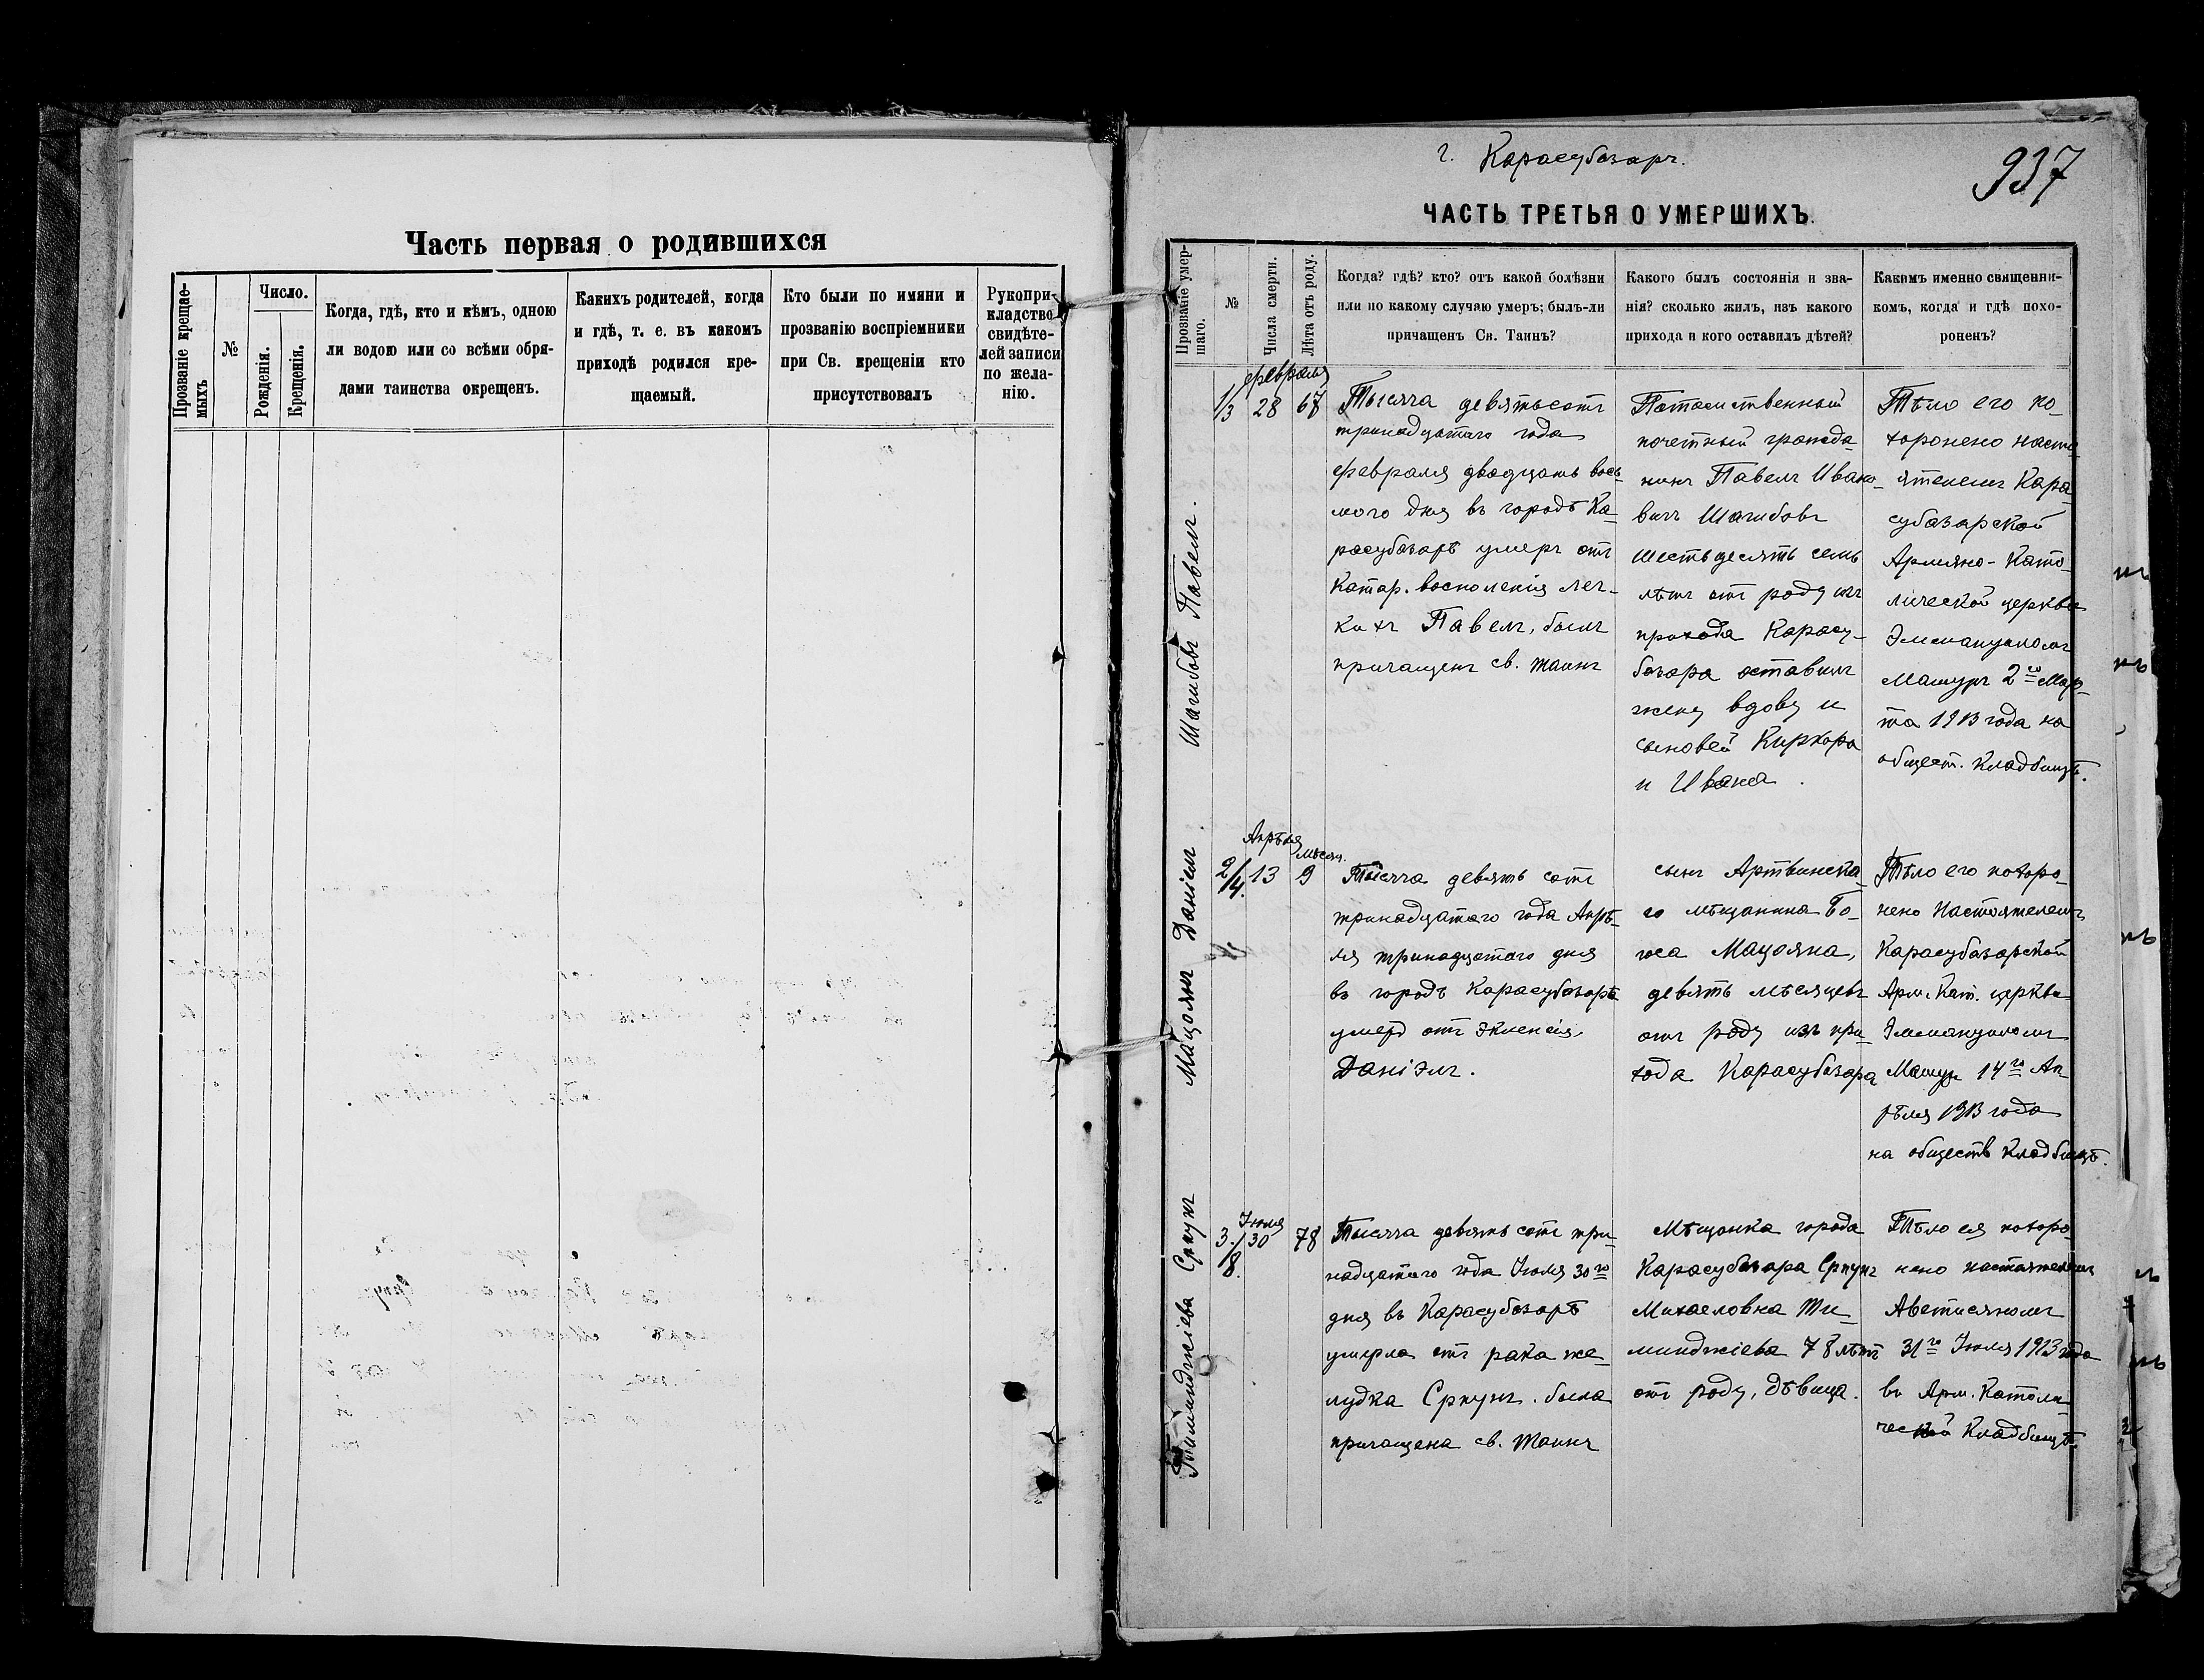 Часть первая о родившихся
Прозваніе крещае-
мыхъ
№
Число.
Рожденія.
Крещенія.
Когда, гдѣ, кто и кѣмъ, одною
ли водою или со всѣми обря-
дами таинства окрещенъ.
Какихъ родителей, когда
и гдѣ, т. е. въ какомъ
приходѣ родился кре-
щаемый.
Кто были по имяни и
прозванію воспріемники
при Св. крещеніи кто
присутствовалъ
Рукопри-
кладство
свидѣте-
лей записи
по жела-
нію.
г. Карасубазаръ.
937
ЧАСТЬ ТРЕТЬЯ О УМЕРШИХЪ.
Прозваніе умер-
шаго.
№
Числа смерти.
Лѣта отъ роду.
Когда? гдѣ? кто? отъ какой болѣзни
или по какому случаю умеръ; былъ-ли
причащенъ Св. Таинъ?
Какого былъ состоянія и зва-
нія? сколько жилъ, изъ какого
прихода и кого оставилъ дѣтей?
Какимъ именно священни-
комъ, когда и гдѣ похо-
роненъ?
Шагибовъ Павелъ.
1/3
февраля
28
67
Тысяча девятьсотъ
тринадцатаго года
февраля двадцать вось-
мого дня въ городѣ Ка-
расубазарѣ умеръ отъ
Катар. воспоменія лег-
кихъ Павелъ, былъ
причащенъ св. таинъ
Потомственный
почетный гражда-
нинъ Павелъ Ивано-
вичъ Шагибовъ
шестьдесятъ семь
лѣтъ отъ роду изъ
прихода Карасу-
базара оставилъ
жену вдову и
сыновей Киркора
и Ивана.
Тѣло его по-
хоронено насто-
ятелемъ Кара-
субазарской
Армяно-Като-
лической церкви
Эммануиломъ
Машуръ 2го Мар-
та 1913 года на
общест. Кладбищѣ.
Мацоянъ Даніелъ
2/4.
Апрѣля
13
мѣсяц.
9
Тысяча девять сотъ
тринадцатаго года Апрѣ-
ля тринадцатаго дня
въ городѣ Карасубазарѣ
умеръ отъ
Даніэлъ.
сынъ Артвинска-
го мѣщанина Бо-
госа Мацояна,
девять мѣсяцевъ
отъ роду изъ при-
хода Карасубазара
Тѣло его похоро-
нено Настоятелемъ
Карасубазарской
Арм. Кат. церкви
Эммануиломъ
Машуръ 14го Ап-
рѣля 1913 года
на обществ Кладбищѣ.
Тиминджіева Српунъ
3./8.
Іюля
30
78
Тысяча девять сотъ три-
надцатаго года Іюля 30го
дня въ Карасубазарѣ
умерла отъ рака же-
лудка Српунъ. была
причащена св. Таинъ
Мѣщанка города
Карасубазара Српунъ
Михаеловна Ти-
минджіева 78 лѣтъ
отъ роду, дѣвица.
Тѣло ея похоро-
нено настоятелемъ
Аветисяномъ
31го Іюля 1913 года
въ Арм. Католи-
ческой Кладбищѣ.